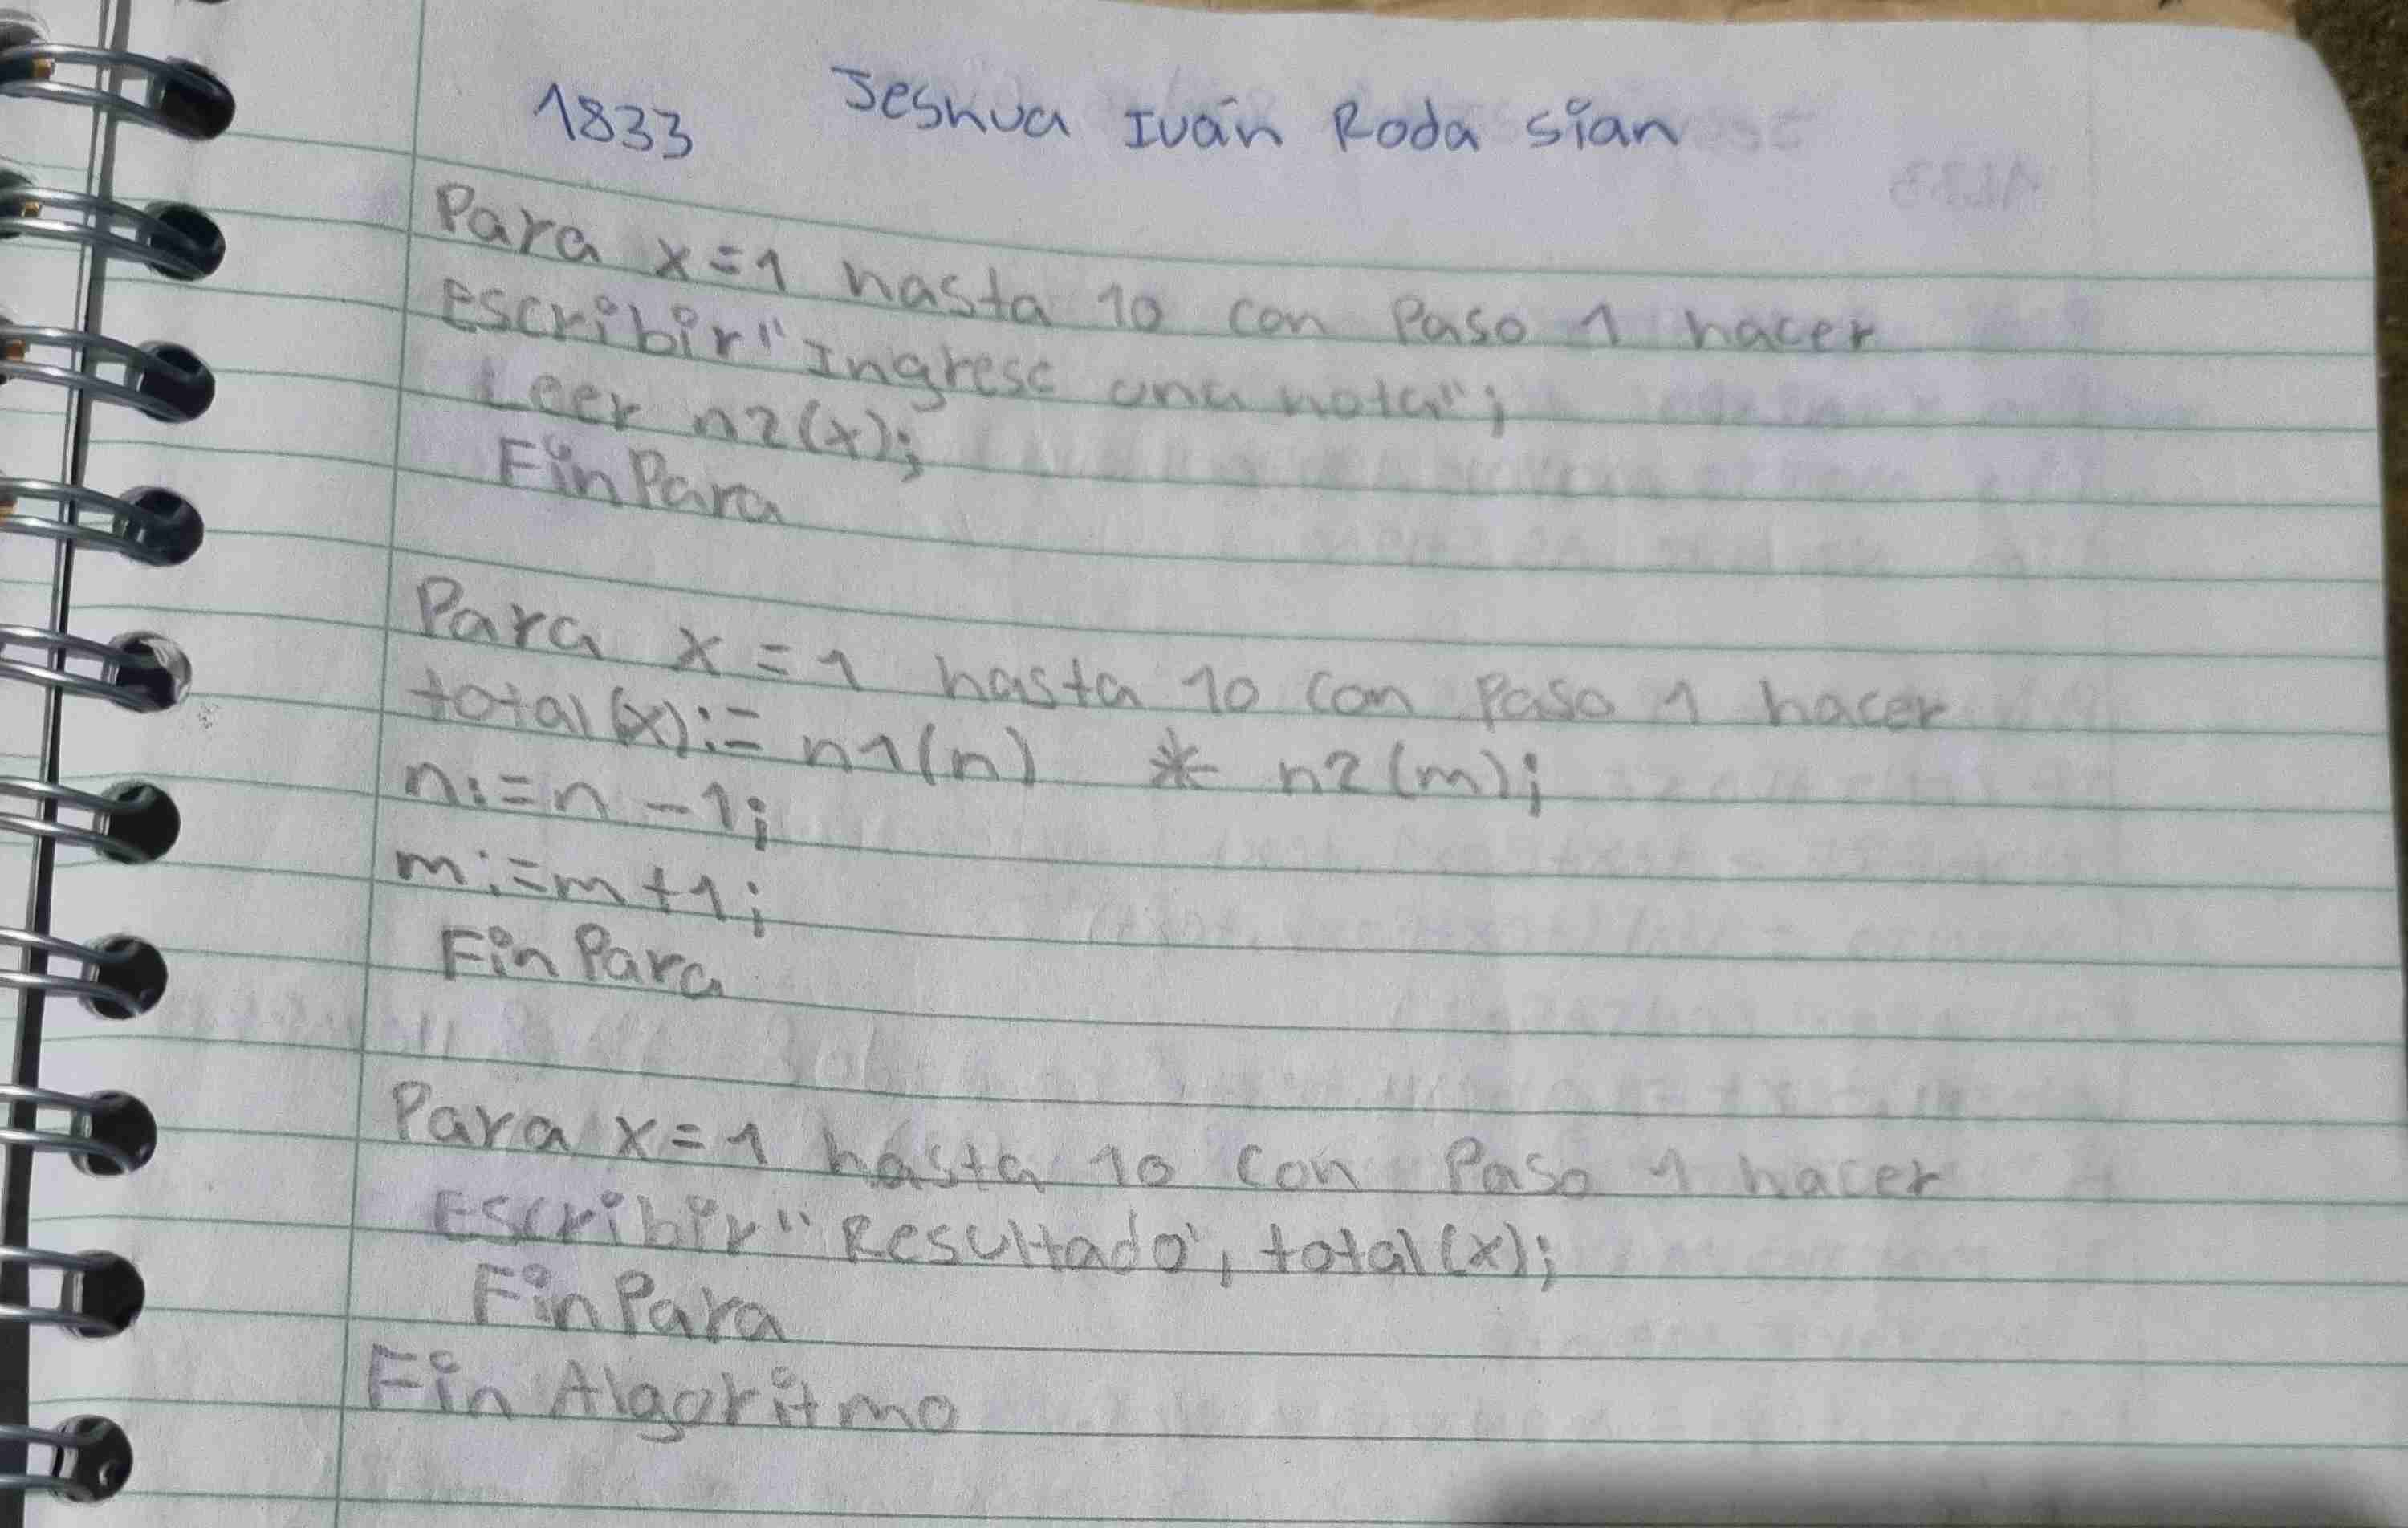 1833 Jeshua Iván Roda sian
Para x=1 hasta 10 con Paso 1 hacer
Escribir "Ingrese una nota";
Leer n2(x);
FinPara
Para x=1 hasta 10 con Paso 1 hacer
total(x):= n1(n) * n2(m);
n:=n-1;
m:=m+1;
FinPara
Para x=1 hasta 10 con Paso 1 hacer
Escribir "Resultado", total(x);
FinPara
Fin Algoritmo